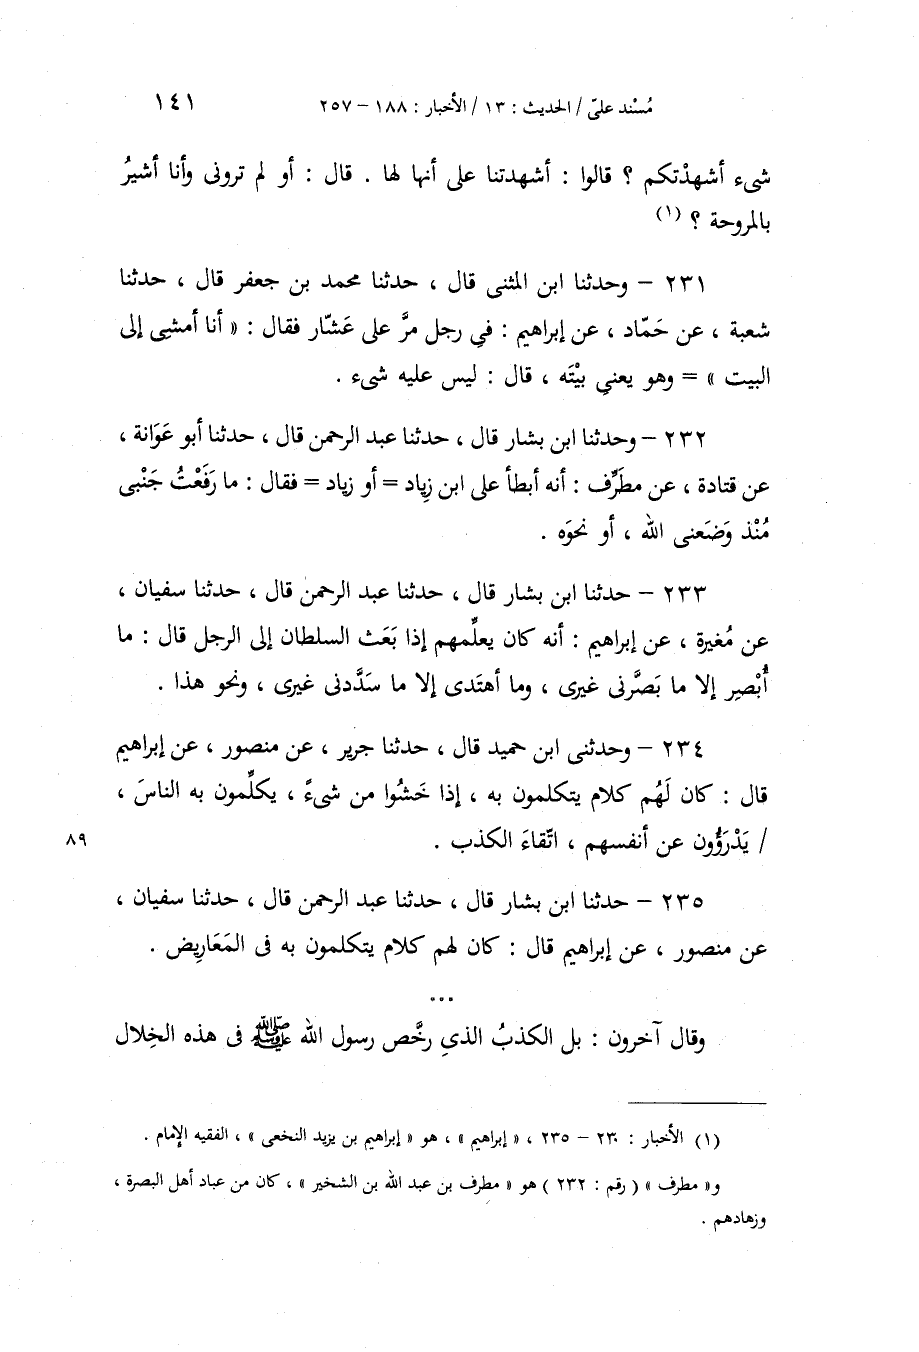 مُسْند علىّ / الحديث : ١٣ / الأخبار : ١٨٨ – ٢٥٧ ١٤١
شىء أشهدْتكم ؟ قالوا : أشهدتنا على أنها لها . قال : أو لم ترونى وأنا أشيرُ
بالمروحة ؟ (١)
٢٣١ – وحدثنا ابن المثنى قال ، حدثنا محمد بن جعفر قال ، حدثنا
شعبة ، عن حَمّاد ، عن إبراهيم : في رجل مرَّ على عَشّار فقال : « أنا أمشيِ إلى
البيت » = وهو يعنيِ بيْتَه ، قال : ليس عليه شىء .
٢٣٢ – وحدثنا ابن بشار قال ، حدثنا عبد الرحمن قال ، حدثنا أبو عَوَانة ،
عن قتادة ، عن مطَرِّف : أنه أبطأ على ابن زِياد = أو زياد = فقال : ما رَفَعْتُ جَنْبى
مُنْذ وَضَعنى الله ، أو نحوَه .
٢٣٣ – حدثنا ابن بشار قال ، حدثنا عبد الرحمن قال ، حدثنا سفيان ،
عن مُغيرة ، عن إبراهيم : أنه كان يعلِّمهم إذا بَعَث السلطان إلى الرجل قال : ما
أُبْصِر إلا ما بَصَّرنى غيرى ، وما أهتَدى إلا ما سَدَّدنى غيرى ، ونحو هذا .
٢٣٤ – وحدثنى ابن حميد قال ، حدثنا جرير ، عن منصور ، عن إبراهيم
قال : كان لَهُم كلام يتكلمون به ، إذا خَشُوا من شىءً ، يكلِّمون به الناسَ ،
/ يَدْرَؤُون عن أنفسهم ، اتّقاءَ الكذب . ٨٩
٢٣٥ – حدثنا ابن بشار قال ، حدثنا عبد الرحمن قال ، حدثنا سفيان ،
عن منصور ، عن إبراهيم قال : كان لهم كلام يتكلمون به فى المَعَارِيض .
°°°
وقال آخرون : بل الكذبُ الذيِ رخَّص رسول الله ﷺ فى هذه الخِلال
(١) الأخبار : ٢٣٠ – ٢٣٥ ، « إبراهيم » ، هو « إبراهيم بن يزيد النخعى » ، الفقيه الإمام .
و« مطرف » ( رقم : ٢٣٢ ) هو « مطرف بن عبد الله بن الشخير » ، كان من عباد أهل البصرة ،
وزهادهم .